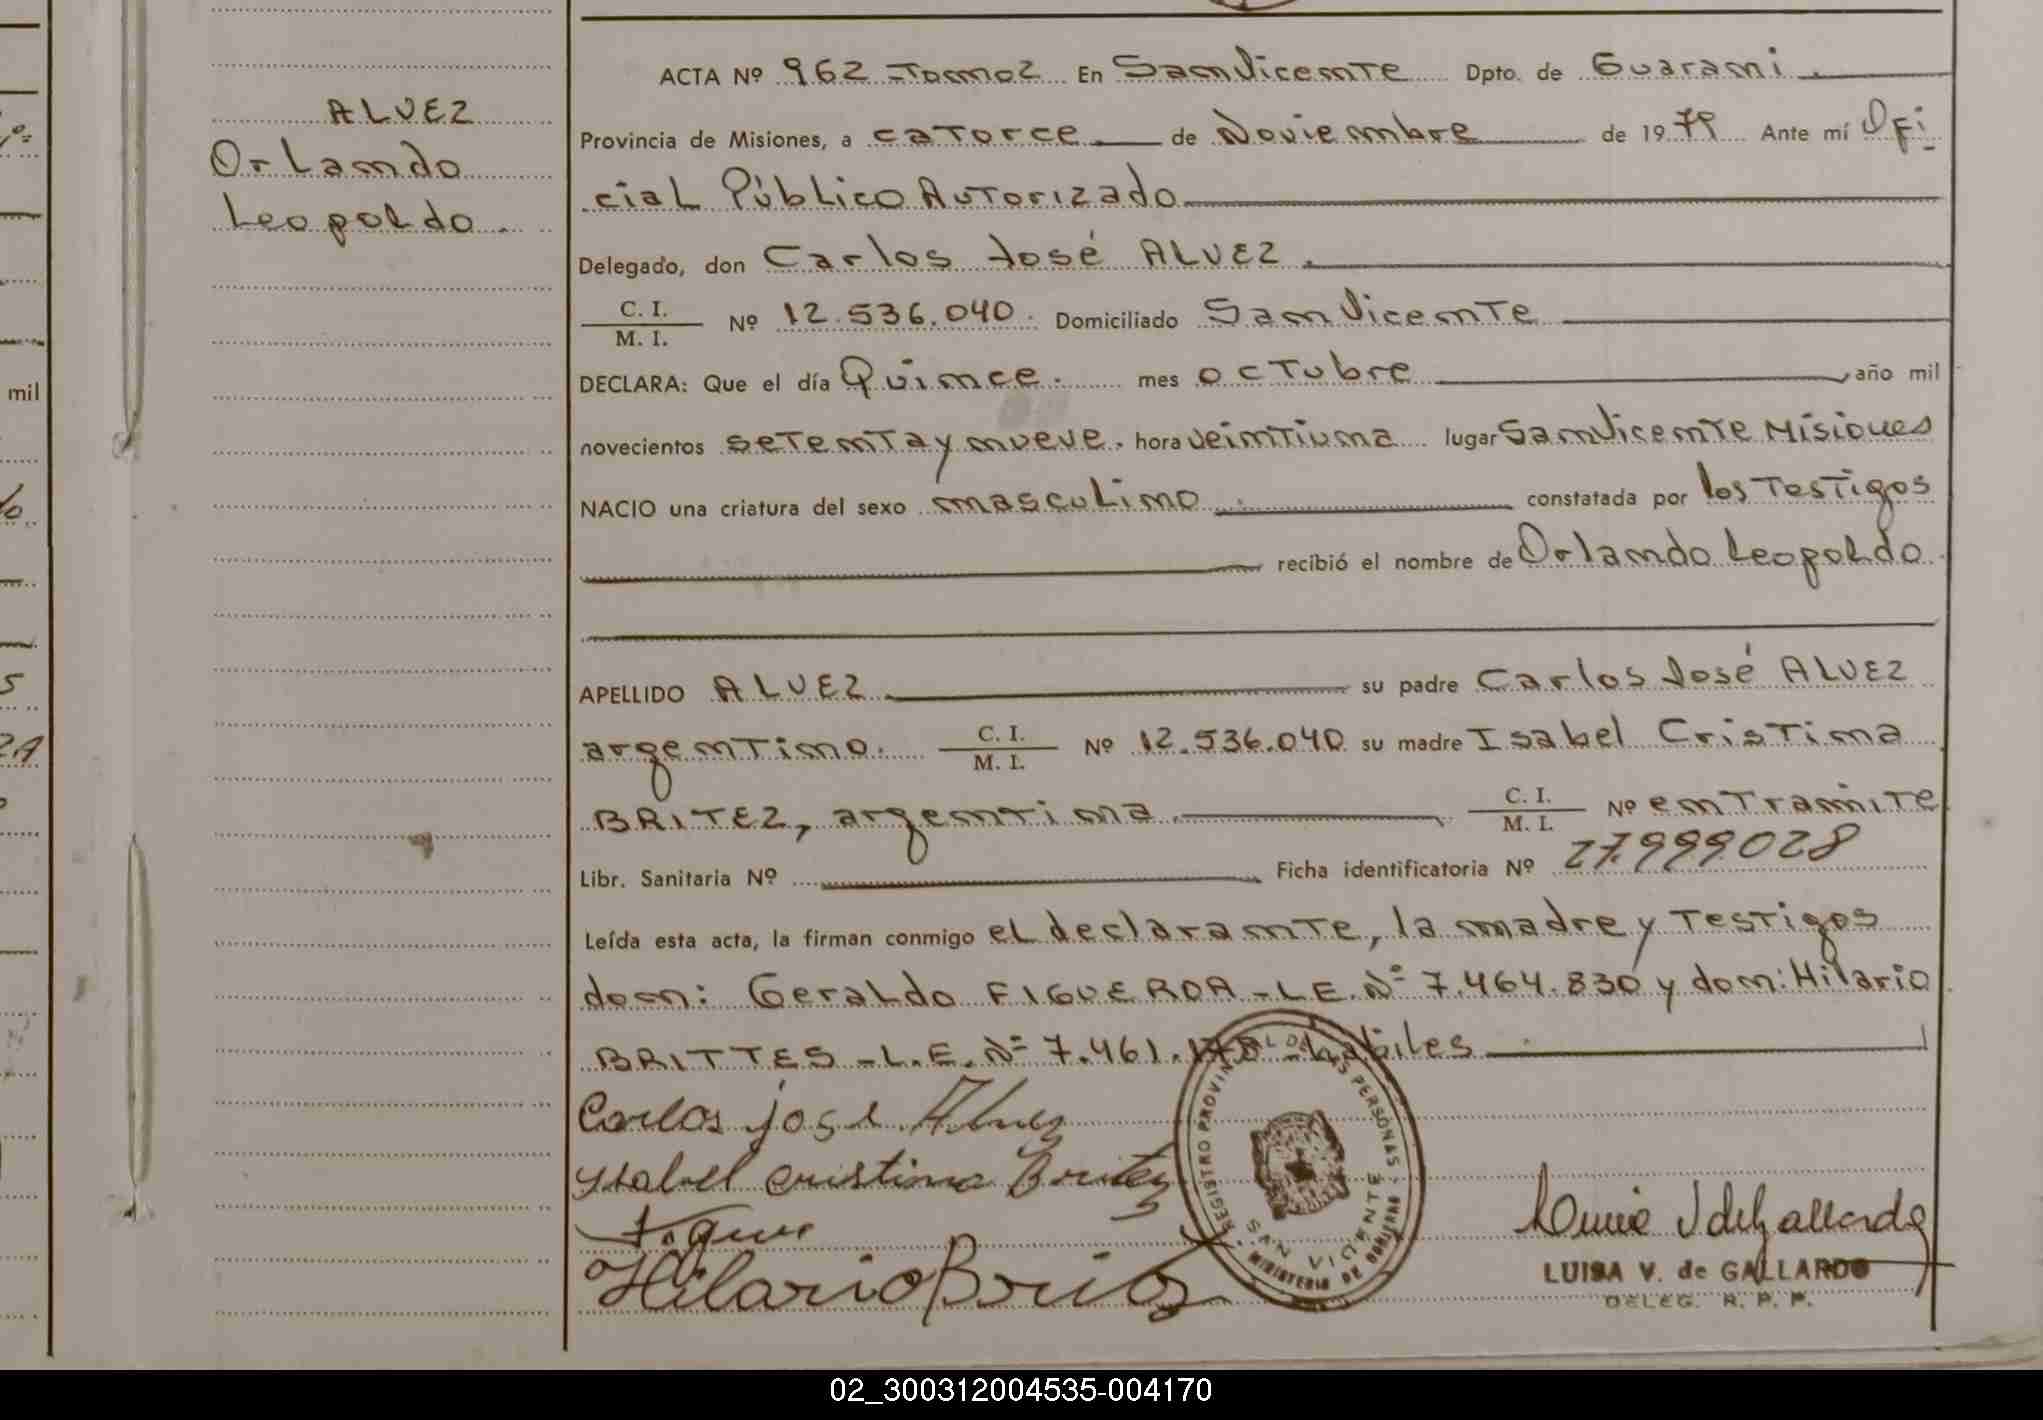 ALVEZ
Orlando
Leopoldo
mil
ACTA Nº 962 -Tomo 2 En San Vicente Dpto. de Guarani
Provincia de Misiones, a catorce de Noviembre de 1979 Ante mí Ofi
cial Público Autorizado
Delegado, don Carlos José ALVEZ.
C. I.
M. I. Nº 12.536.040. Domiciliado San Vicente
DECLARA: Que el día Quince. mes octubre año mil
novecientos setenta y nueve. hora veintiuna lugar San Vicente Misiones
NACIO una criatura del sexo masculino constatada por los Testigos
recibió el nombre de Orlando Leopoldo.
APELLIDO ALVEZ su padre Carlos José ALVEZ
argentino. C. I.
M. I. Nº 12.536.040 su madre Isabel Cristina
BRITEZ, argentina C. I.
M. I. Nº en Tramite
Libr. Sanitaria Nº Ficha identificatoria Nº 27.999.028
Leída esta acta, la firman conmigo el declarante, la madre y Testigos
don: Geraldo FIGUEROA - L.E. Nº 7.464.830 y don: Hilario
BRITTES - L.E. Nº 7.461.178 - habiles
Carlos jose Alvez
Ysabel cristina Britez
Hilario Brites
REGISTRO PROVINCIAL DE LAS PERSONAS
SAN VICENTE
MINISTERIO DE GOBIERNO
Luisa V de Gallardo
LUISA V. de GALLARDO
DELEG. R. P. P.
02_300312004535-004170